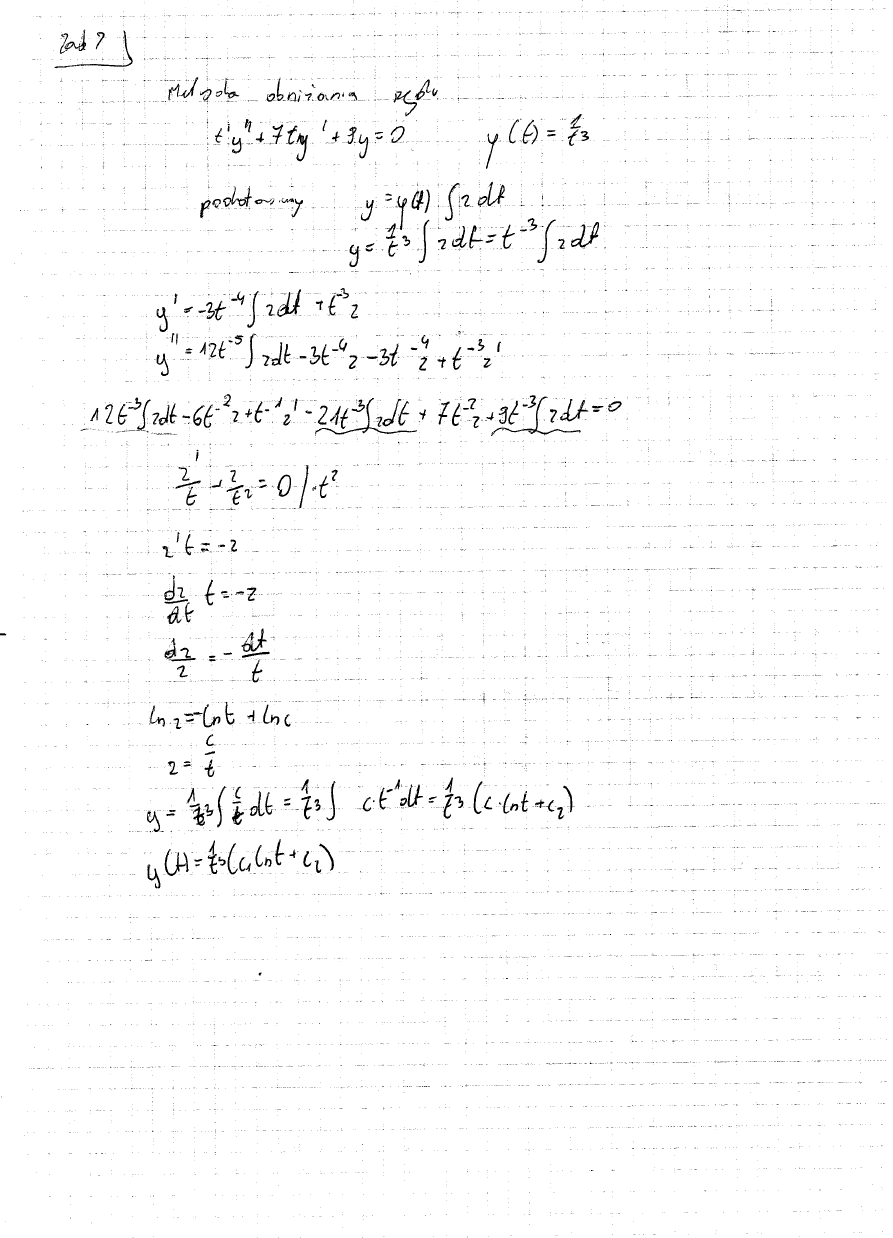 Zad 7
Metoda obniżania rzędu
t'y'' + 7ty' + 9y = 0 φ(t) = 1/t³
podstawmy y = φ(t) ∫ z dt
y = 1/t³ ∫ z dt = t⁻³ ∫ z dt
y' = -3t⁻⁴ ∫ z dt + t⁻³z
y'' = 12t⁻⁵ ∫ z dt - 3t⁻⁴z - 3t⁻⁴z + t⁻³z'
12t⁻³ ∫ z dt - 6t⁻²z + t⁻¹z' - 21t⁻³ ∫ z dt + 7t⁻²z + 9t⁻³ ∫ z dt = 0
z'/t + z/t² = 0 /·t²
z't = -z
dz/dt t = -z
dz/z = - dt/t
ln z = -ln t + ln c
z = c/t
y = 1/t³ ∫ c/t dt = 1/t³ ∫ c·t⁻¹ dt = 1/t³ (c·ln t + c₂)
y(t) = 1/t³ (c₁ ln t + c₂)